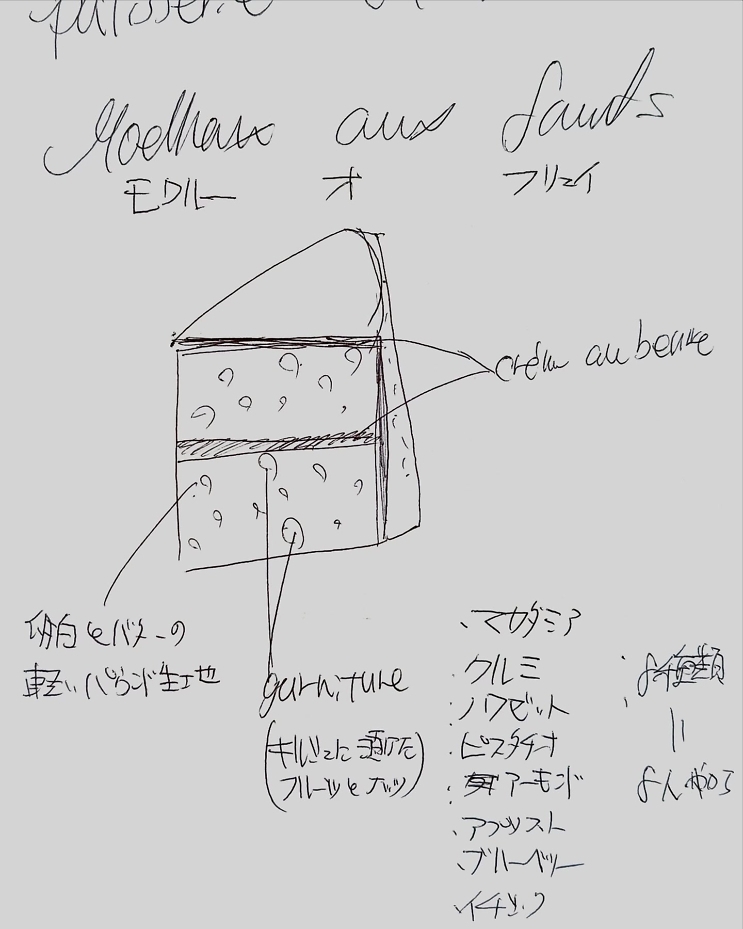 patisserie
Moelleux aux fruits
モワルー オ フリュイ
crème au beurre
卵白とバターの
軽いパウンド生地
garniture
(キルシュに漬けた
フルーツとナッツ)
・マカダミア
・クルミ
・ノワゼット
・ピスタチオ
・アーモンド
・アプリコット
・ブルーベリー
・イチジク
8種類
||